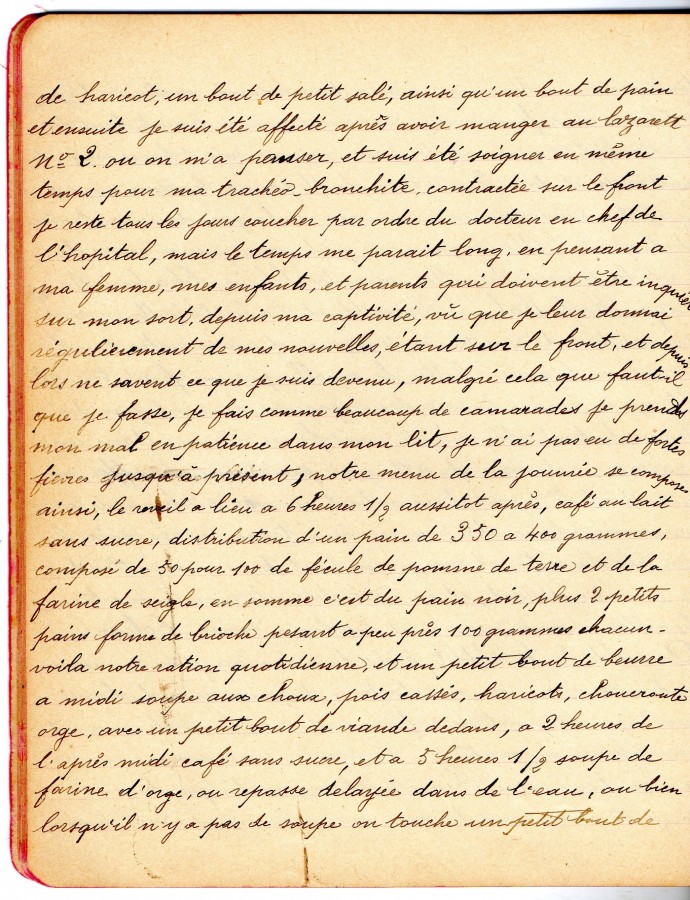 de haricot, un bout de petit salé, ainsi qu'un bout de pain
et ensuite je suis été affecté après avoir manger au lazarett
No 2. ou on m'a panser, et suis été soigner en même
temps pour ma trachéo-bronchite, contractée sur le front
je reste tous les jours coucher par ordre du docteur en chef de
l'hopital, mais le temps me parait long, en pensant a
ma femme, mes enfants, et parents qui doivent être inquiet
sur mon sort, depuis ma captivité, vû que je leur donnai
régulièrement de mes nouvelles, étant sur le front, et depuis
lors ne savent ce que je suis devenu, malgré cela que faut-il
que je fasse, je fais comme beaucoup de camarades je prends
mon mal en patience dans mon lit, je n'ai pas eu de fortes
fievres jusqu'à présent, notre menu de la journée se compose
ainsi, le reveil a lieu a 6 heures 1/2 aussitot après, café au lait
sans sucre, distribution d'un pain de 350 a 400 grammes,
composé de 50 pour 100 de fécule de pomme de terre et de la
farine de seigle, en somme c'est du pain noir, plus 2 petits
pains forme de brioche pesant a peu près 100 grammes chacun-
voila notre ration quotidienne, et un petit bout de beurre
a midi soupe aux choux, pois cassés, haricots, choucroute
orge, avec un petit bout de viande dedans, a 2 heures de
l'après midi café sans sucre, et a 5 heures 1/2 soupe de
farine d'orge, ou repasse delayée dans de l'eau, ou bien
lorsqu'il n'y a pas de soupe on touche un petit bout de